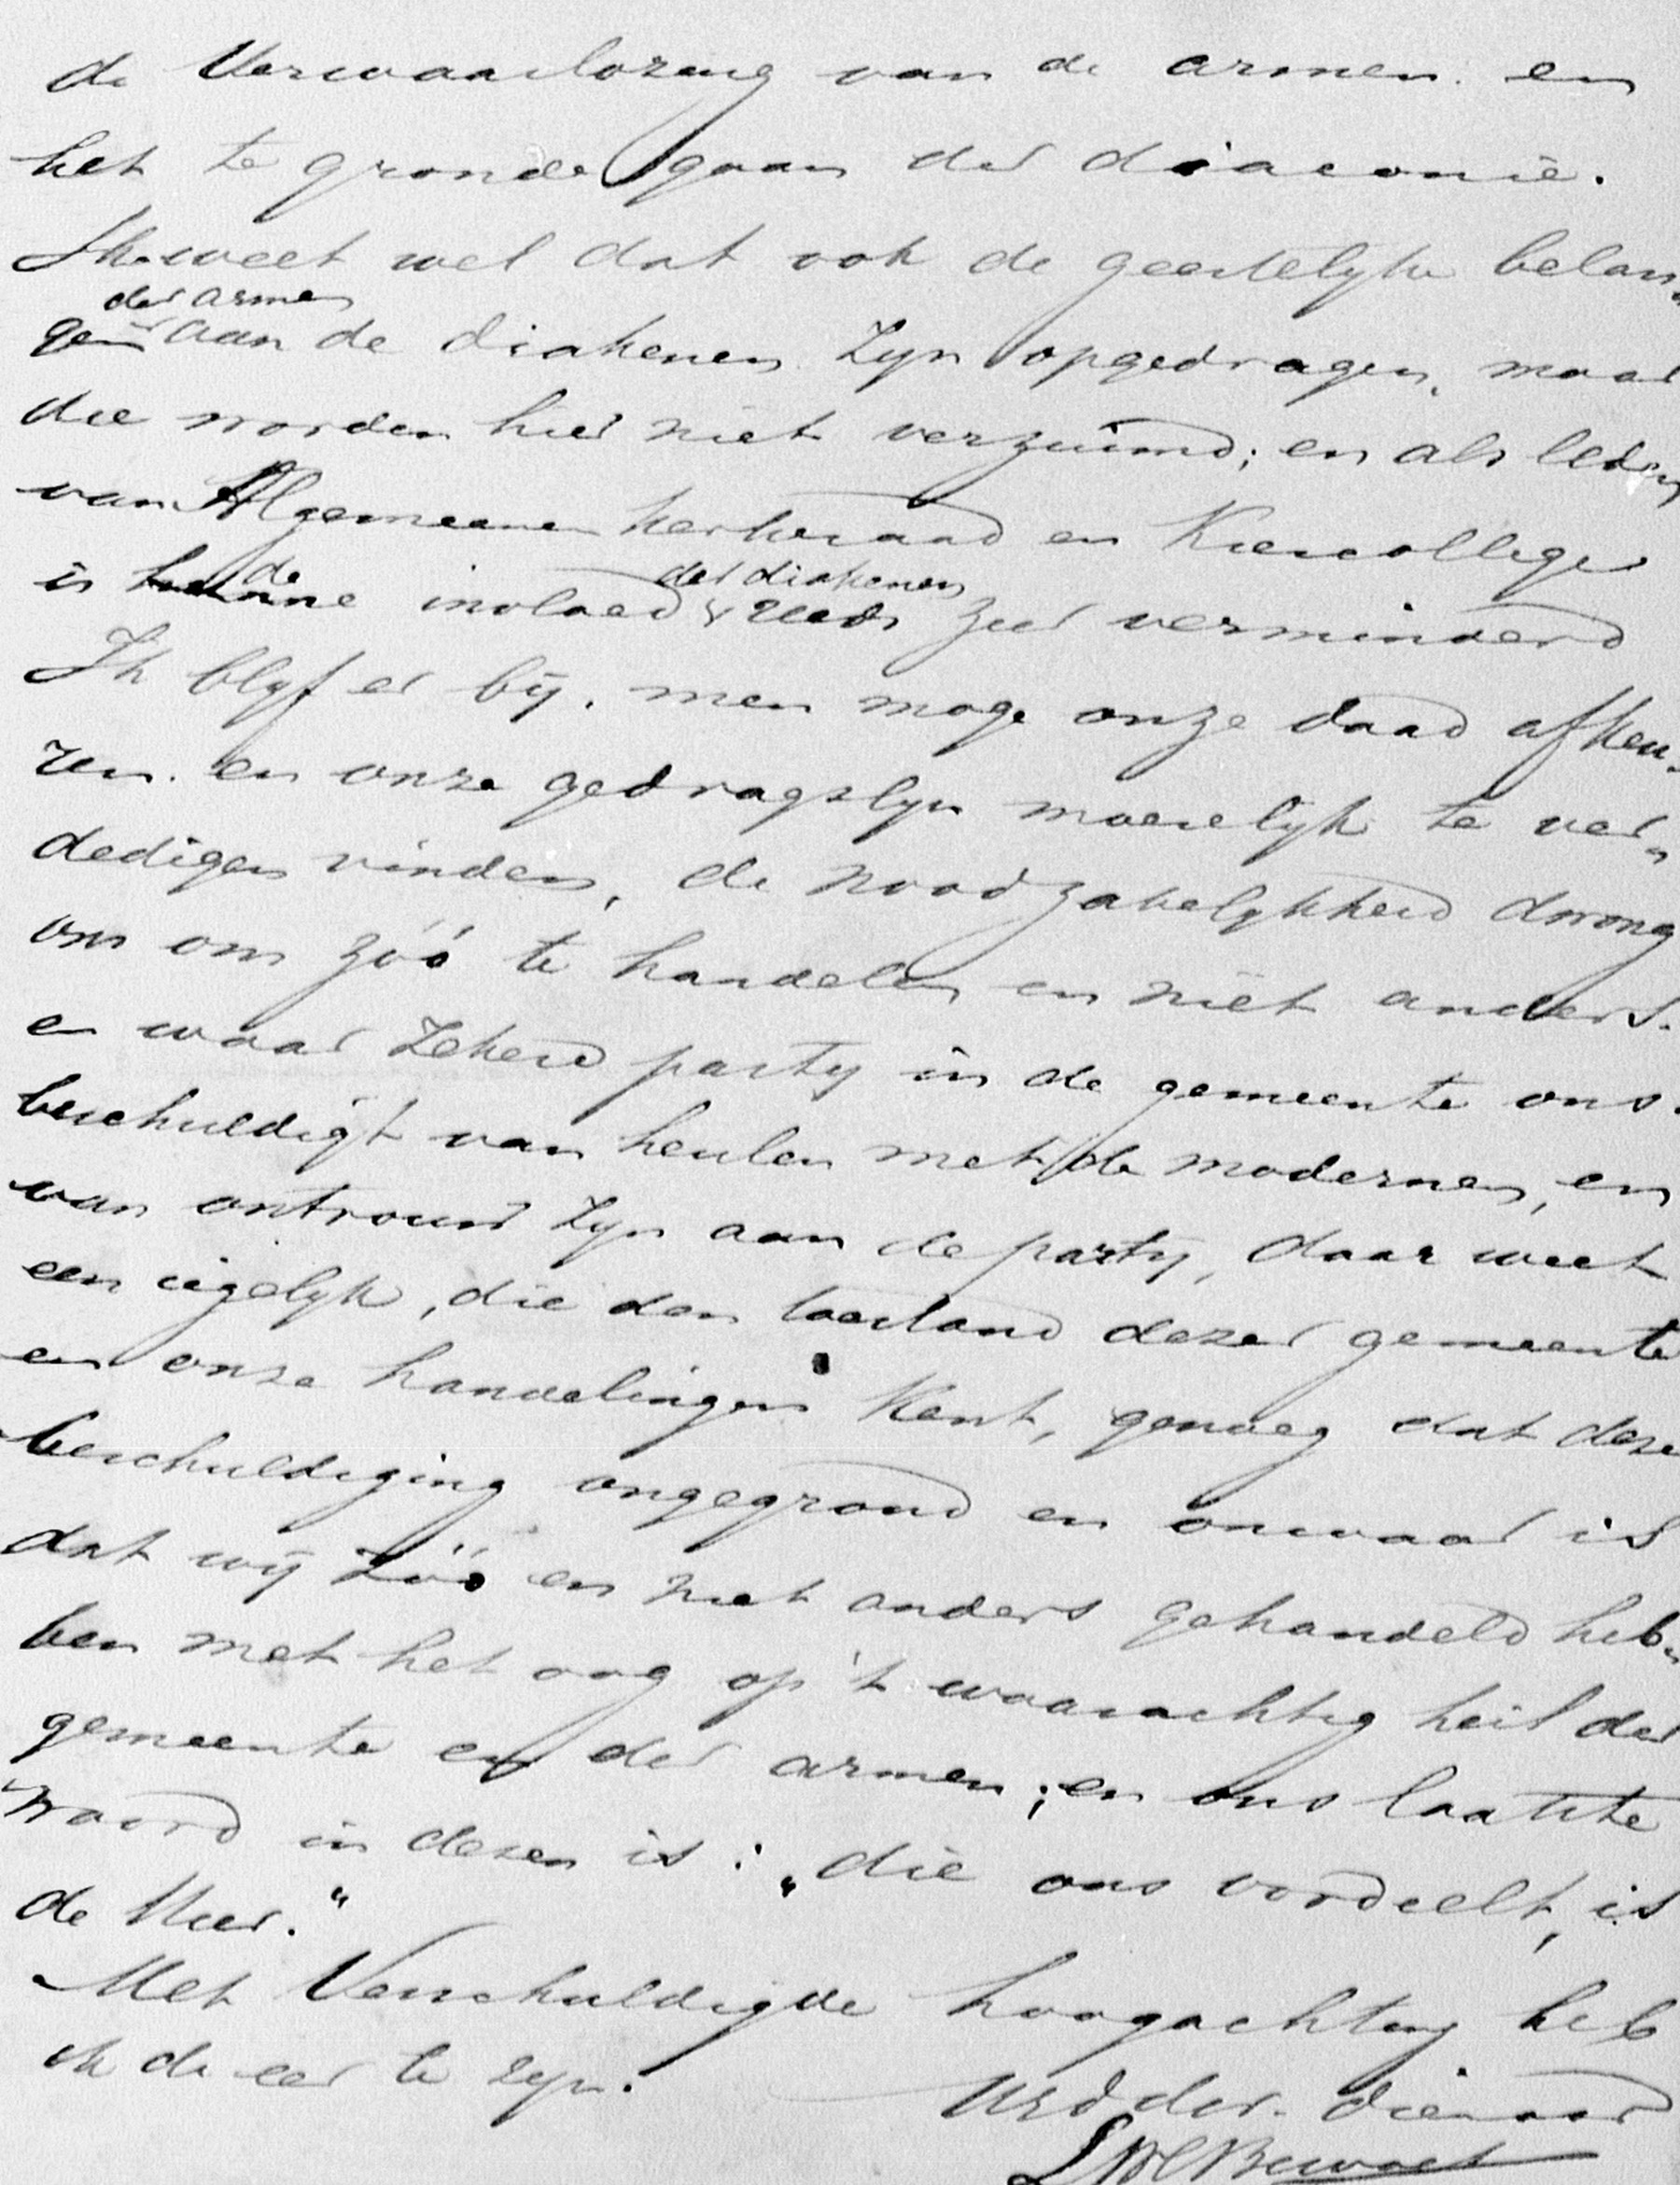 de Verwaarlozing van de armen en
het te gronde gaan der diaconie.
Ik weet wel dat ook de geestelyke belan-
der armen
gen aan de diakenen zyn opgedragen, maar
die worden hier niet verzuimd; en als leden
van Algemeenen kerkeraad en Kiescollege
de der diakenen
is hunne invloed reeds zeer verminderd
Ik blyf er bij, men moge onze daad afkeu-
ren en onze gedragslyn moeielyk te ver-
dedigen vinden, de noodzakelykheid drong
ons om zóó te handelen en niet anders.
en waar zekere party in de gemeente ons
beschuldigt van heulen met de modernen, en
van ontrouw zyn aan de partij, daar weet
een iegelyk, die den toestand dezer gemeente
en onze handelingen kent, genoeg dat deze
beschuldiging ongegrond en onwaar is
dat wij zóó en niet anders gehandeld heb-
ben met het oog op 't waarachtig heil der
gemeente en der armen; en ons laatste
woord in dezen is: „die ons oordeelt, is
de Heer."
Met Verschuldigde hoogachting heb
ik de eer te zyn.
Uwd der. dienaar